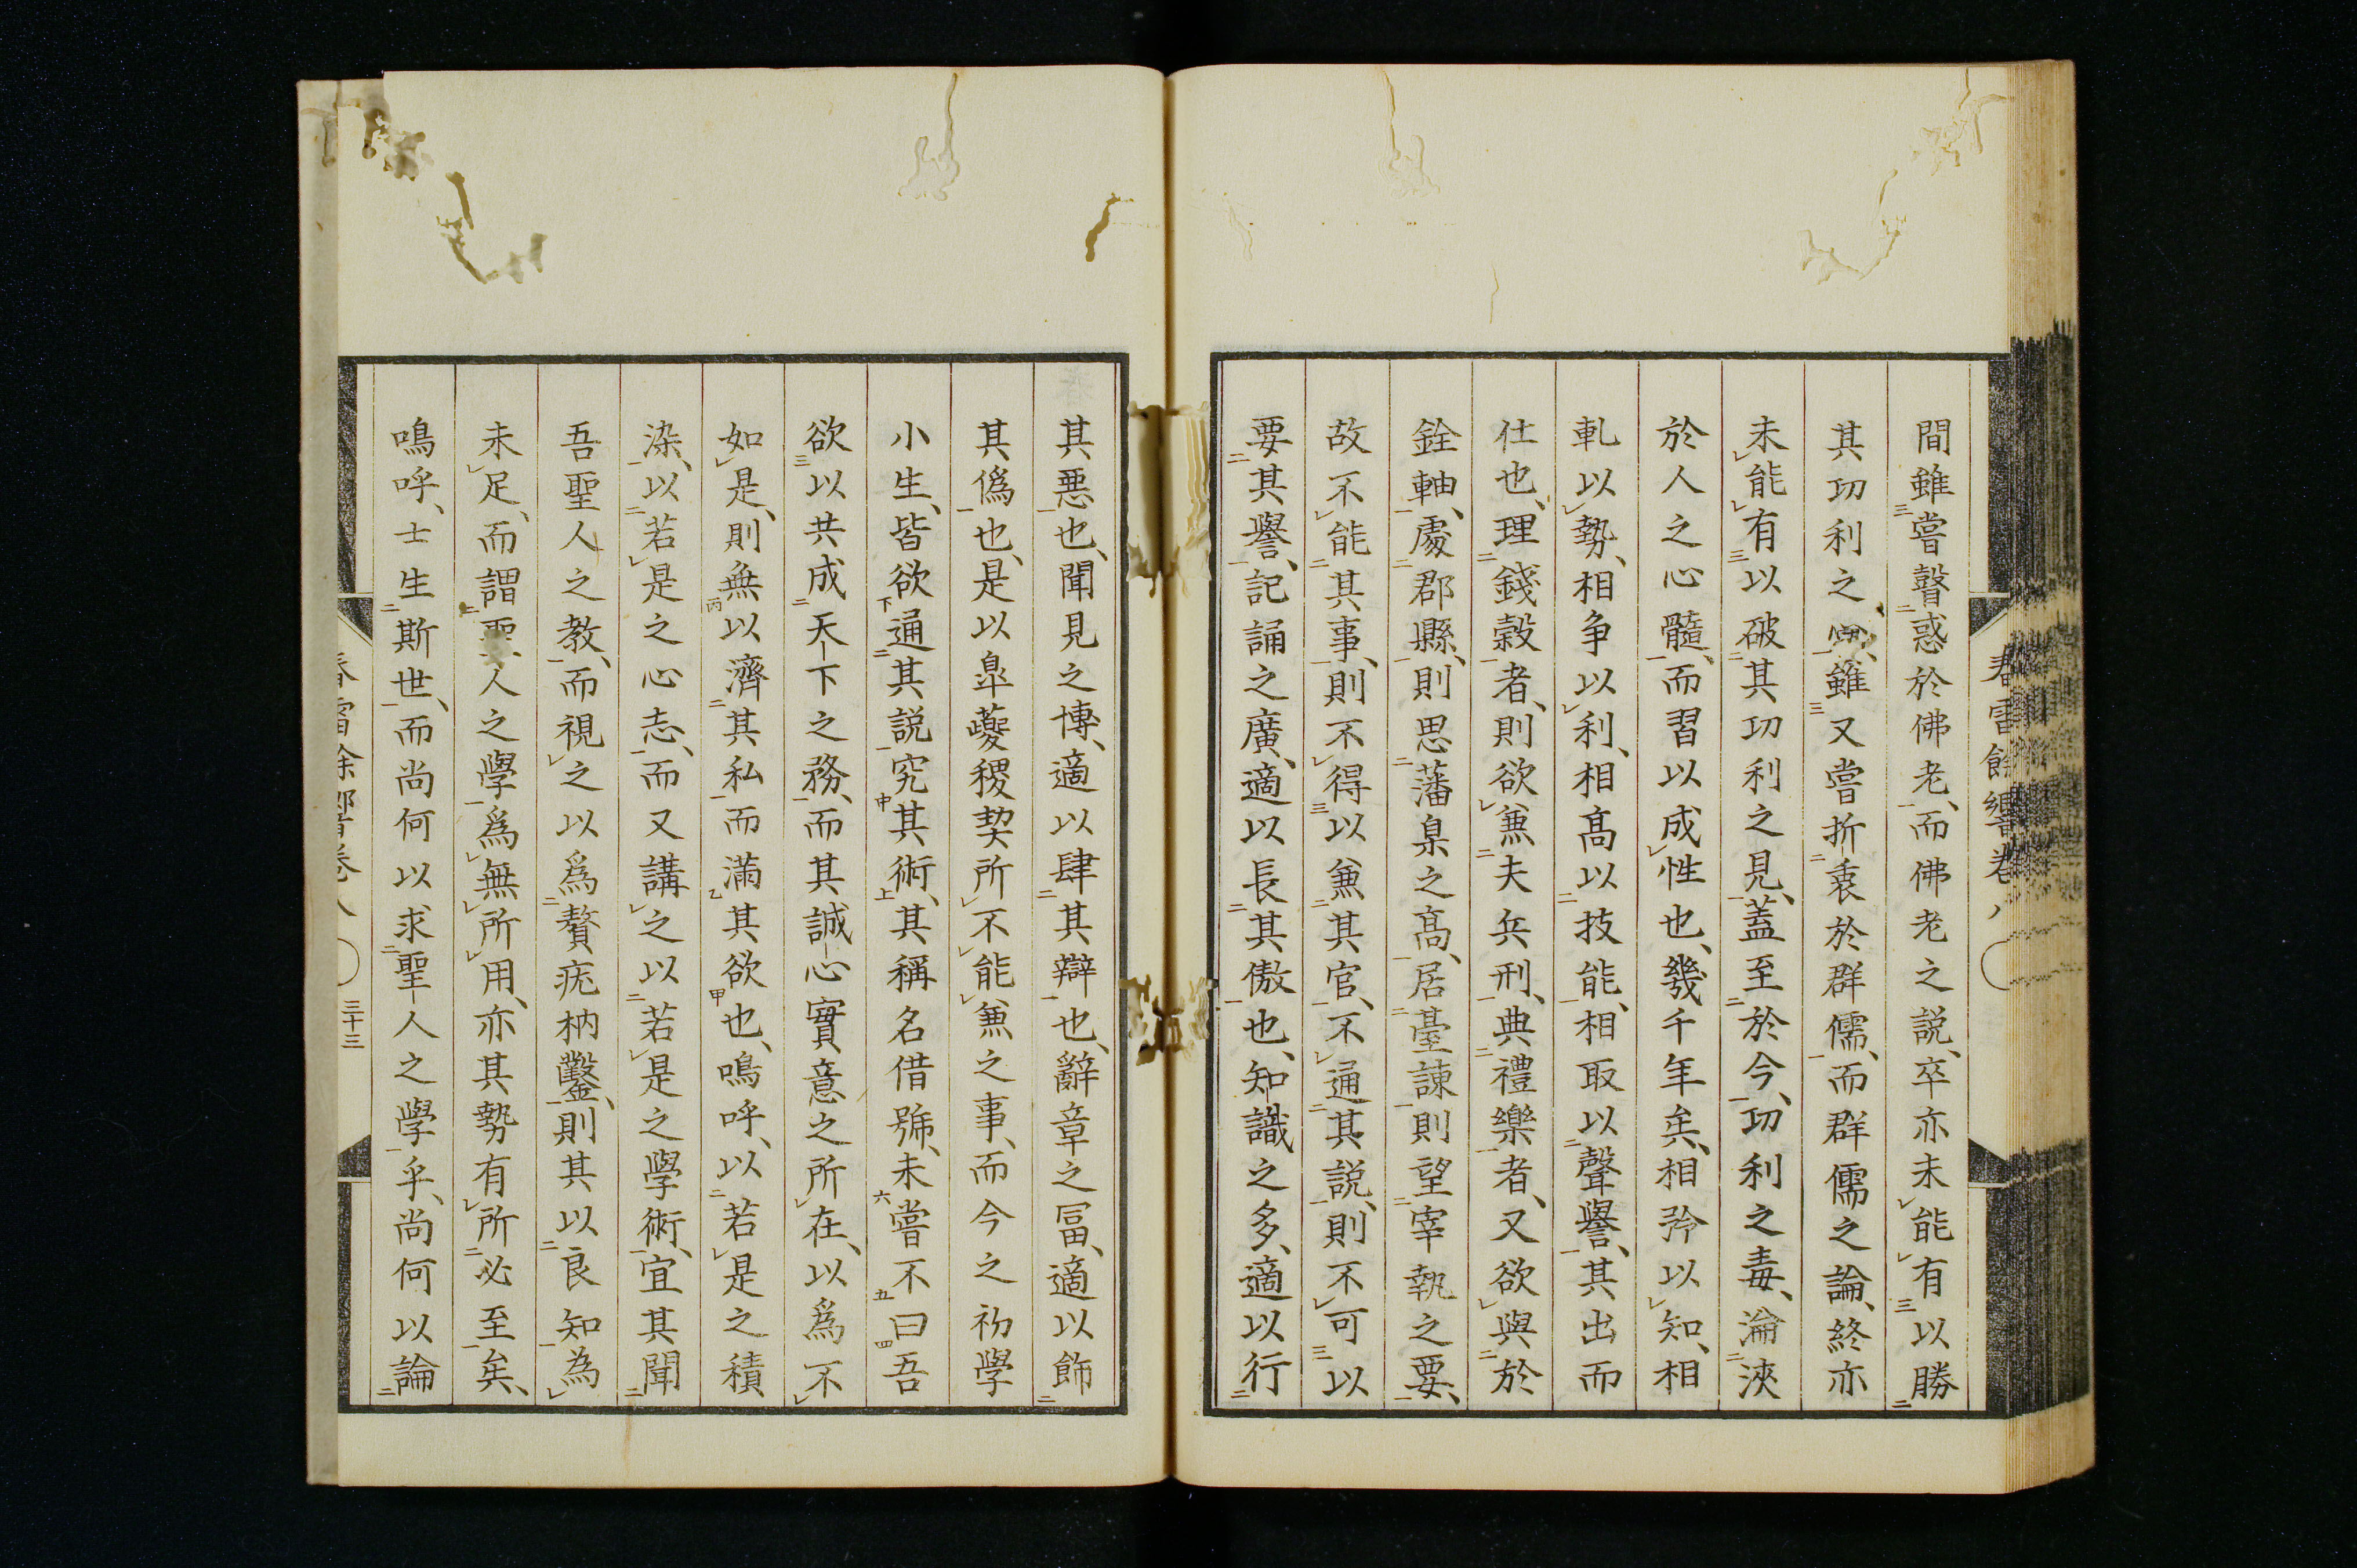 間雖嘗瞽惑於佛老、而佛老之説、卒亦未能有以勝
其功利之心、雖又嘗折衷於群儒、而群儒之論、終亦
未能有以破其功利之見、蓋至於今、功利之毒、淪浹
於人之心髓、而習以成性也、幾千年矣、相矜以知、相
軋以勢、相争以利、相高以技能、相取以聲譽、其出而
仕也、理錢穀者、則欲兼夫兵刑、典禮樂者、又欲與於
銓軸、處郡縣、則思藩臬之高、居臺諫則望宰執之要、
故不能其事、則不得以兼其官、不通其説、則不可以
要其譽、記誦之廣、適以長其傲也、知識之多、適以行
其惡也、聞見之博、適以肆其辯也、辭章之冨、適以飾
其僞也、是以臯夔稷契所不能兼之事、而今之初學
小生、皆欲通其説究其術、其稱名借號、未嘗不曰吾
欲以共成天下之務、而其誠心實意之所在、以爲不
如是、則無以濟其私而滿其欲也、嗚呼、以若是之積
染、以若是之心志、而又講之以若是之學術、宜其聞
吾聖人之教、而視之以爲贅疣枘鑿、則其以良知為
未足、而謂聖人之學爲無所用、亦其勢有所必至矣、
嗚呼、士生斯世、而尚何以求聖人之學乎、尚何以論
春雷餘響卷八
三十三